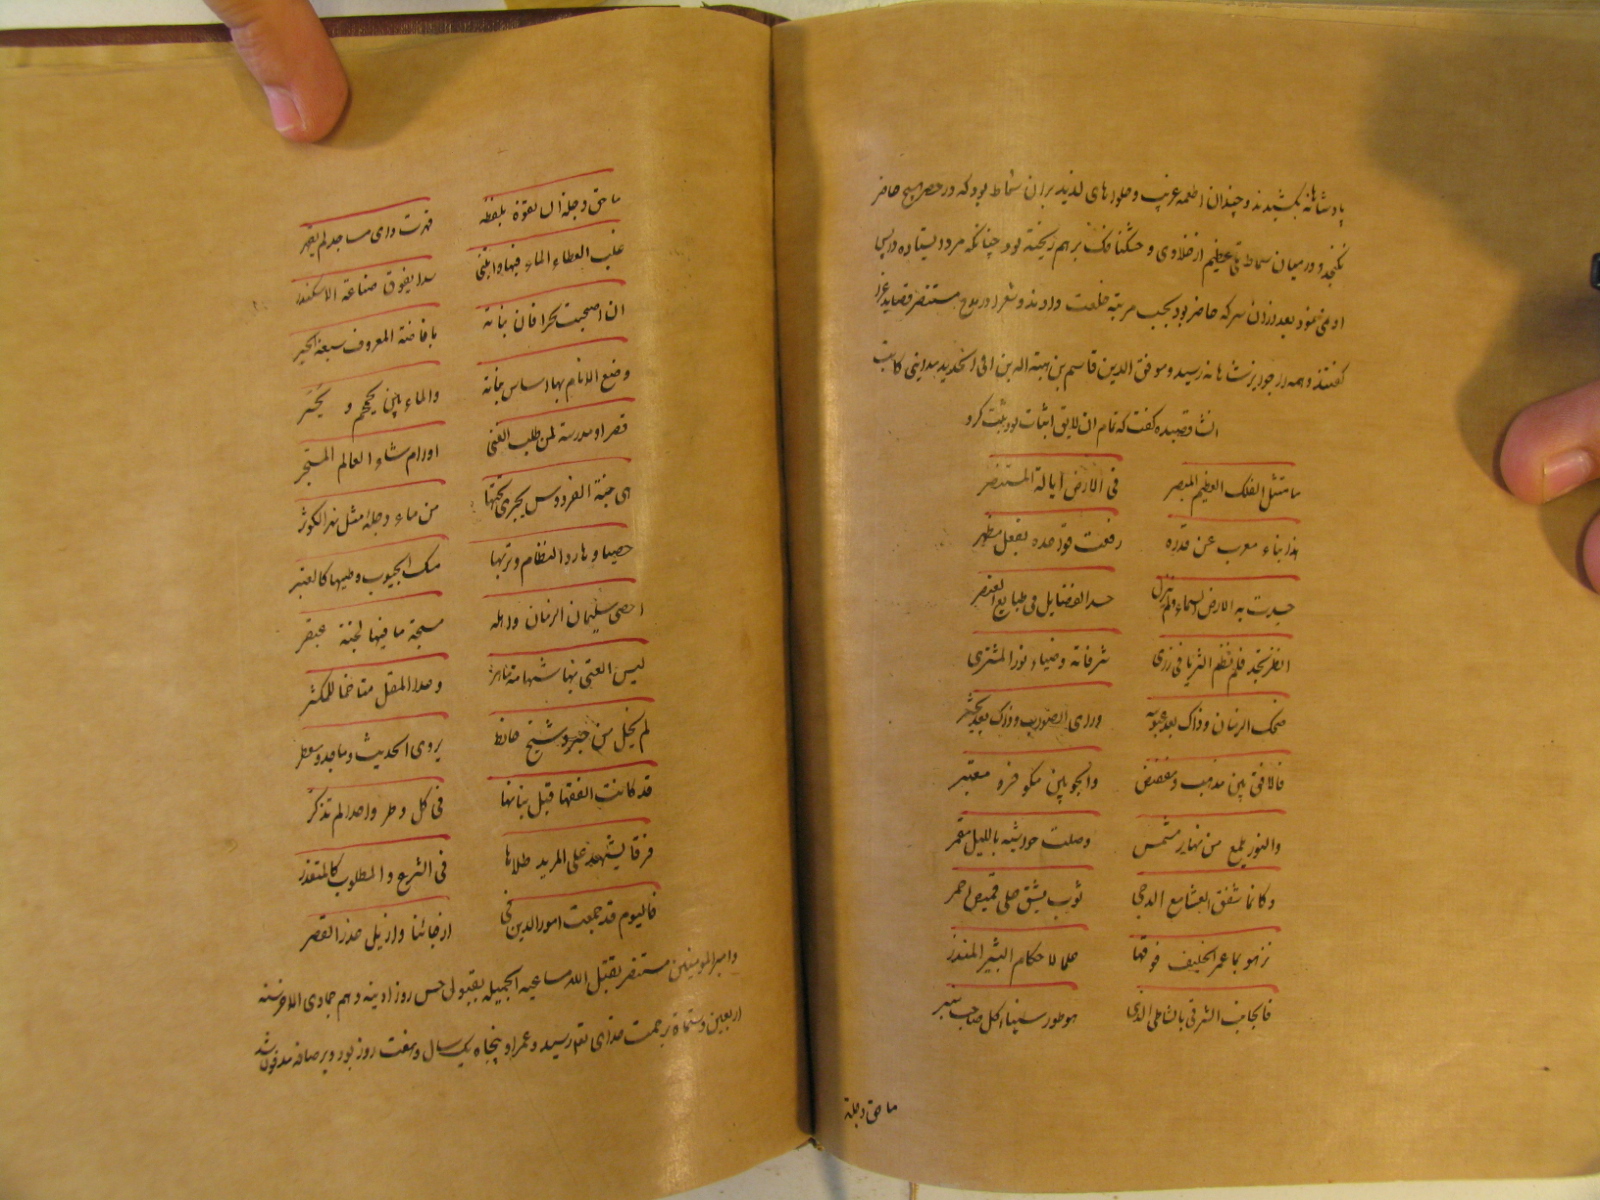 پادشاهانه بکشیدند و چندان اطعمه غریب و حلواهای لذیذ بران سماط بود که در حصر هیچ حاضر
نکنجد و در میان سماط قبه عظیم از قلاوی و خشکنانک بر هم ریخته بود چنانکه مرد ایستاده در پس
او می‌نمود بعد از ان هر که حاضر بود بحسب مرتبه خلعت دادند و شعرا در مدح مستنصر قصاید غرا
کفتند و همه را جوایز شاهانه رسید و موفق الدین قاسم بن هبة الله بن ابی الحدید مداینی کاتب
انشا قصیده کفت که تمام ان لایق اثبات بود ثبت کرد
ما مثل الفلک العظیم المبصر فی الارض ایالة المستنصر
هذا بناء معرب عن قدره رفعت قواعده بفعل مطهر
حسدت به الارض السماء ولم تزل حسد الفضایل فی طبایع العنصر
انظر تجد فلم نظم الثریا فی ذری شرفاته وضیاء نور المشتری
ضحک الزمان وذاک بعد عبوسه ورای الصواب وذاک بعد تحیر
فالافق بین مذهب ومفضض والجو بین مکوفر ومعنبر
والنور یلمع من نهار مشمس وصلت حواشیه بالیل مقمر
وکانما شفق العشا مع الدجی ثوب یشق علی قمیص احمر
نزهو بما عمر الخلیف فوقها علما لاحکام البشیر المنذر
فالجانب الشرقی بالشاطی الذی هو طور سیناء لکل صاحب سیر
ما حق دجلة
ما حق دجلة ان تفوه بلفظه قدرت ولی مساجد لم یقهر
غلب العطاء الماء فیها وابتنی سدا یفوق صناعة الاسکندر
ان اصبحت بحرا فان بنانه بافاضة المعروف سبعة ابحر
وضع الانام بها اساس بنائه والماء بین تحکم و تجبر
قصر او مدرسة لمن طلب الغنی او رام شاو العالم المتبحر
هی جنة الفردوس یجری تحتها من ماء دجلة مثل نهر الکوثر
حصباوها درد النظام وتربها مسک الجیوب وطیبها کالعنبر
احصی سلیمان الزمان واهله مسحة ما فیها لجنة عبقر
لیس الغنی بها وغدا المقل متاخما للمکثر
لم یخل من حبر وشیخ حافظ یروی الحدیث
قد کانت الفقها قبل بنائها فی کل دهر واحدا لم تذکر
فرقا یشهد علی المرید طلابها فی الشرع والمطلوب کالمتعذر
فالیوم قد جمعت امور الدین فی ارجائها وازیل عذر المقصر
و امیر المومنین مستنصر تقبل الله مساعیه الجمیله بقبول حسن روز ادینه دهم جمادی الاخر سنه
اربعین وستمائة برحمت خدای تعالی رسید و عمر او پنجاه یک سال و هفت روز بود و برصافه مدفون شد